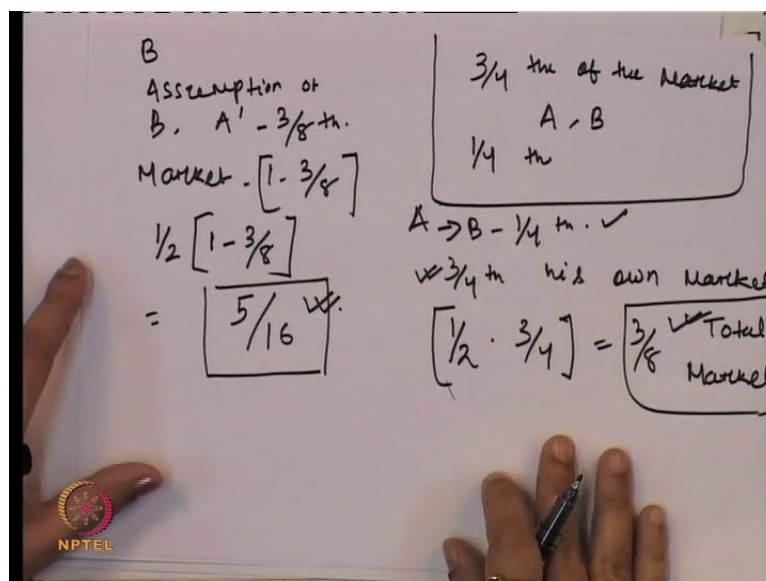 B
Assumption of
B. A' - 3/8 th.
Market. [1 - 3/8]
1/2 [1 - 3/8]
= 5/16
3/4 the of the Market
A, B
1/4 th
A → B - 1/4 th. ✓
3/4 th his own Market
[1/2 · 3/4] = 3/8 Total
Market
NPTEL